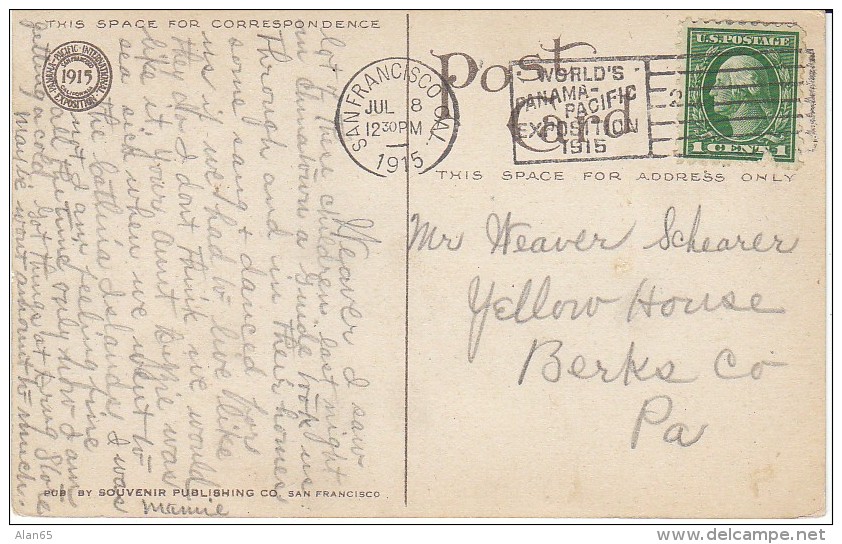 THIS SPACE FOR CORRESPONDENCE
PANAMA-PACIFIC INTERNATIONAL EXPOSITION
SAN FRANCISCO
1915
CALIFORNIA
Weaver I saw
lot of these children last night
in Chinatown a Guide took us
through and in their homes
some sang & danced for
us if we had to live like
they do I dont think we would
like it your aunt was
sea sick when we went to
the Islands I was
not I am feeling fine
all the time only now I am
getting a cold got things at Drug Store
Maybe wont amount to much.
Mamie
PUB BY SOUVENIR PUBLISHING CO. SAN FRANCISCO
Post Card
SAN FRANCISCO, CAL.
JUL 8
1230 PM
1915
WORLD'S
PANAMA-
PACIFIC
EXPOSITION
1915
2
U.S. POSTAGE
1 CENT 1
THIS SPACE FOR ADDRESS ONLY
Mr Weaver Schearer
Yellow House
Berks Co
Pa
Alan65